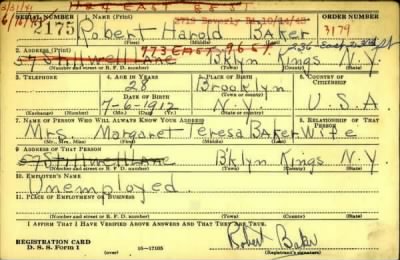 3/31/41 124 EAST
SERIAL NUMBER 1. NAME (Print) ORDER NUMBER
2175 Robert Harold Baker 3179
(First) (Middle) (Last)
2. ADDRESS (Print) 773 EAST
57 Stillwell Lane B'klyn Kings N.Y.
(Number and street or R. F. D. number) (Town) (County) (State)
3. TELEPHONE 4. AGE IN YEARS 5. PLACE OF BIRTH 6. COUNTRY OF CITIZENSHIP
28 Brooklyn
DATE OF BIRTH (Town or county)
7-6-1912 N.Y. U.S.A
(Exchange) (Number) (Mo.) (Day) (Yr.) (State or country)
7. NAME OF PERSON WHO WILL ALWAYS KNOW YOUR ADDRESS 8. RELATIONSHIP OF THAT PERSON
Mrs. Margaret Teresa Baker Wife
(Mr., Mrs., Miss) (First) (Middle) (Last)
9. ADDRESS OF THAT PERSON
57 Stillwell Lane B'klyn Kings N.Y.
(Number and street or R. F. D. number) (Town) (County) (State)
10. EMPLOYER'S NAME
Unemployed.
11. PLACE OF EMPLOYMENT OR BUSINESS
(Number and street or R. F. D. number) (Town) (County) (State)
I AFFIRM THAT I HAVE VERIFIED ABOVE ANSWERS AND THAT THEY ARE TRUE.
REGISTRATION CARD Robert Baker
D. S. S. Form 1 16—17105 (Registrant's signature)